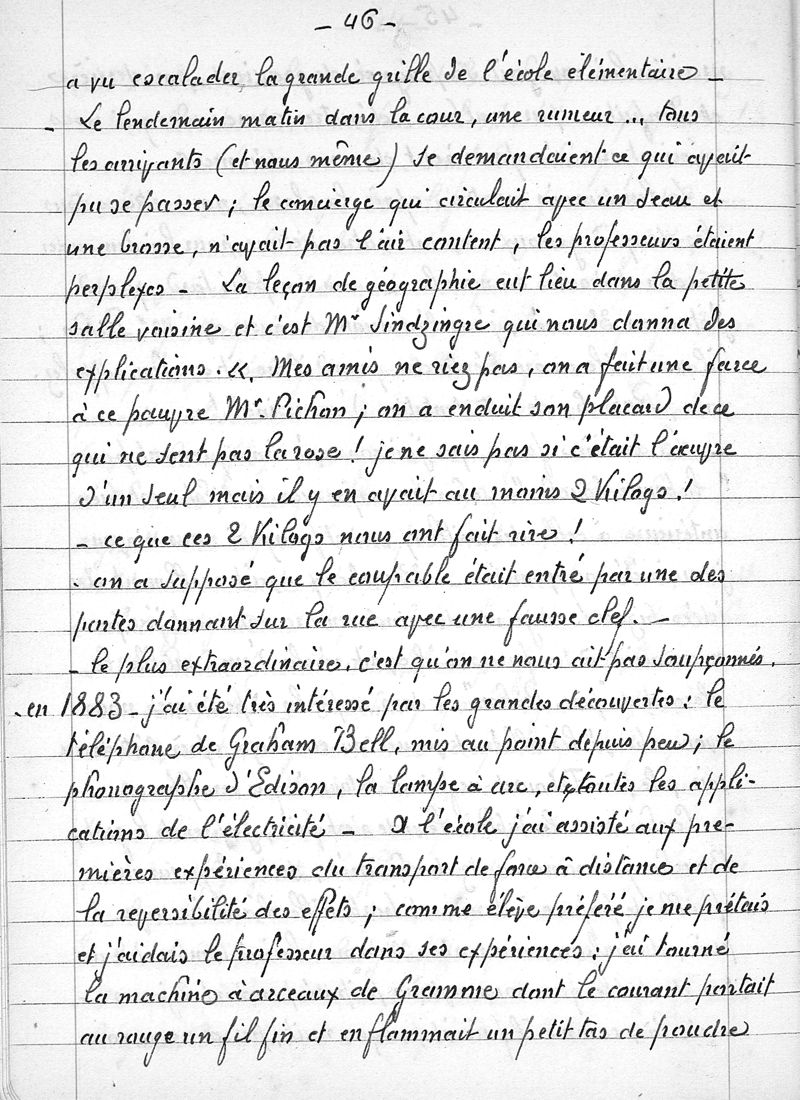 - 46 -
a vu escalader la grande grille de l'école élémentaire -
- Le lendemain matin dans la cour, une rumeur ... tous
les arrivants (et nous même) se demandaient ce qui avait
pu se passer ; le concierge qui circulait avec un seau et
une brosse, n'avait pas l'air content, les professeurs étaient
perplexes - La leçon de géographie eut lieu dans la petite
salle voisine et c'est Mr Sindzingre qui nous donna des
explications. « Mes amis ne riez pas, on a fait une farce
à ce pauvre Mr. Pichon ; on a enduit son placard de ce
qui ne sent pas la rose ! je ne sais pas si c'était l'œuvre
d'un seul mais il y en avait au moins 2 Kilogs !
- ce que ces 2 Kilogs nous ont fait rire !
. on a supposé que le coupable était entré par une des
portes donnant sur la rue avec une fausse clef. -
- le plus extraordinaire, c'est qu'on ne nous ait pas soupçonnés.
. en 1883 - j'ai été très intéressé par les grandes découvertes : le
téléphone de Graham Bell, mis au point depuis peu ; le
phonographe d'Edison, la lampe à arc, et toutes les appli-
cations de l'électricité - A l'école j'ai assisté aux pre-
mières expériences du transport de force à distance et de
la reversibilité des effets ; comme élève préféré je me prêtais
et j'aidais le professeur dans ses expériences : j'ai tourné
la machine à arceaux de Gramme dont le courant portait
au rouge un fil fin et enflammait un petit tas de poudre